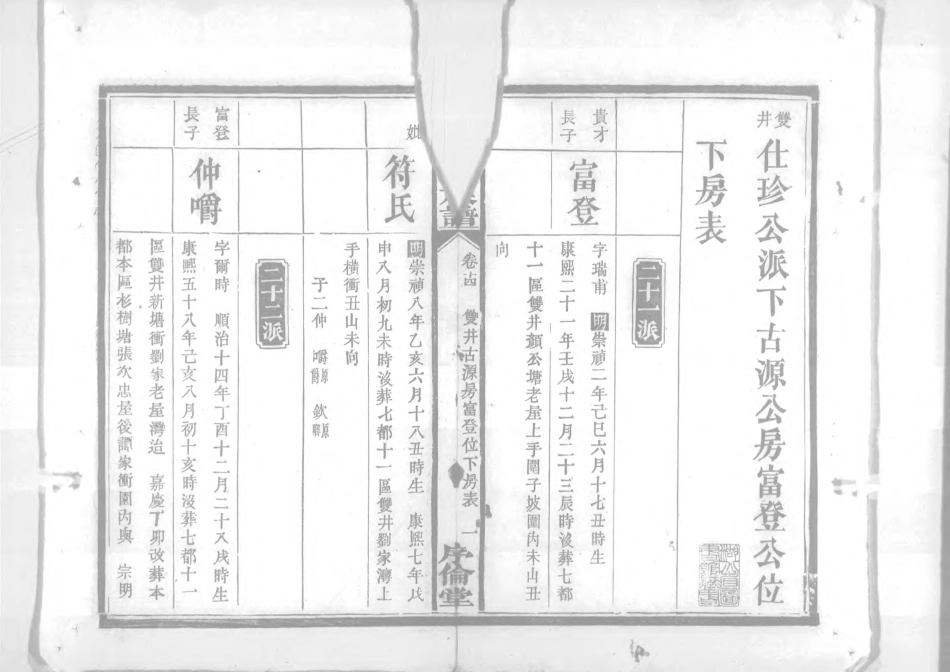 雙井
仕珍公派下古源公房富登公位
下房表
二十一派
貴才長子
富登
字瑞甫 明崇禎二年己巳六月十七丑時生
康熙二十一年壬戌十二月二十三辰時沒葬七都
十一區雙井顏公塘老屋上手園子坡圍內未山丑
向
譜
卷十四 雙井古源房富登位下房表 一
序倫堂
符氏
明崇禎八年乙亥六月十八丑時生 康熙七年戊
申八月初九未時沒葬七都十一區雙井劉家灣上
手橫衝丑山未向
子二仲 嚼原爵 欽原聯
二十二派
富登長子
仲嚼
字爾時 順治十四年丁酉十二月二十八戌時生
康熙五十八年己亥八月初十亥時沒葬七都十一
區雙井新塘衝劉家老屋灣 嘉慶丁卯改葬本
都本區杉樹塘張次忠屋後譚家衝園內與 宗明